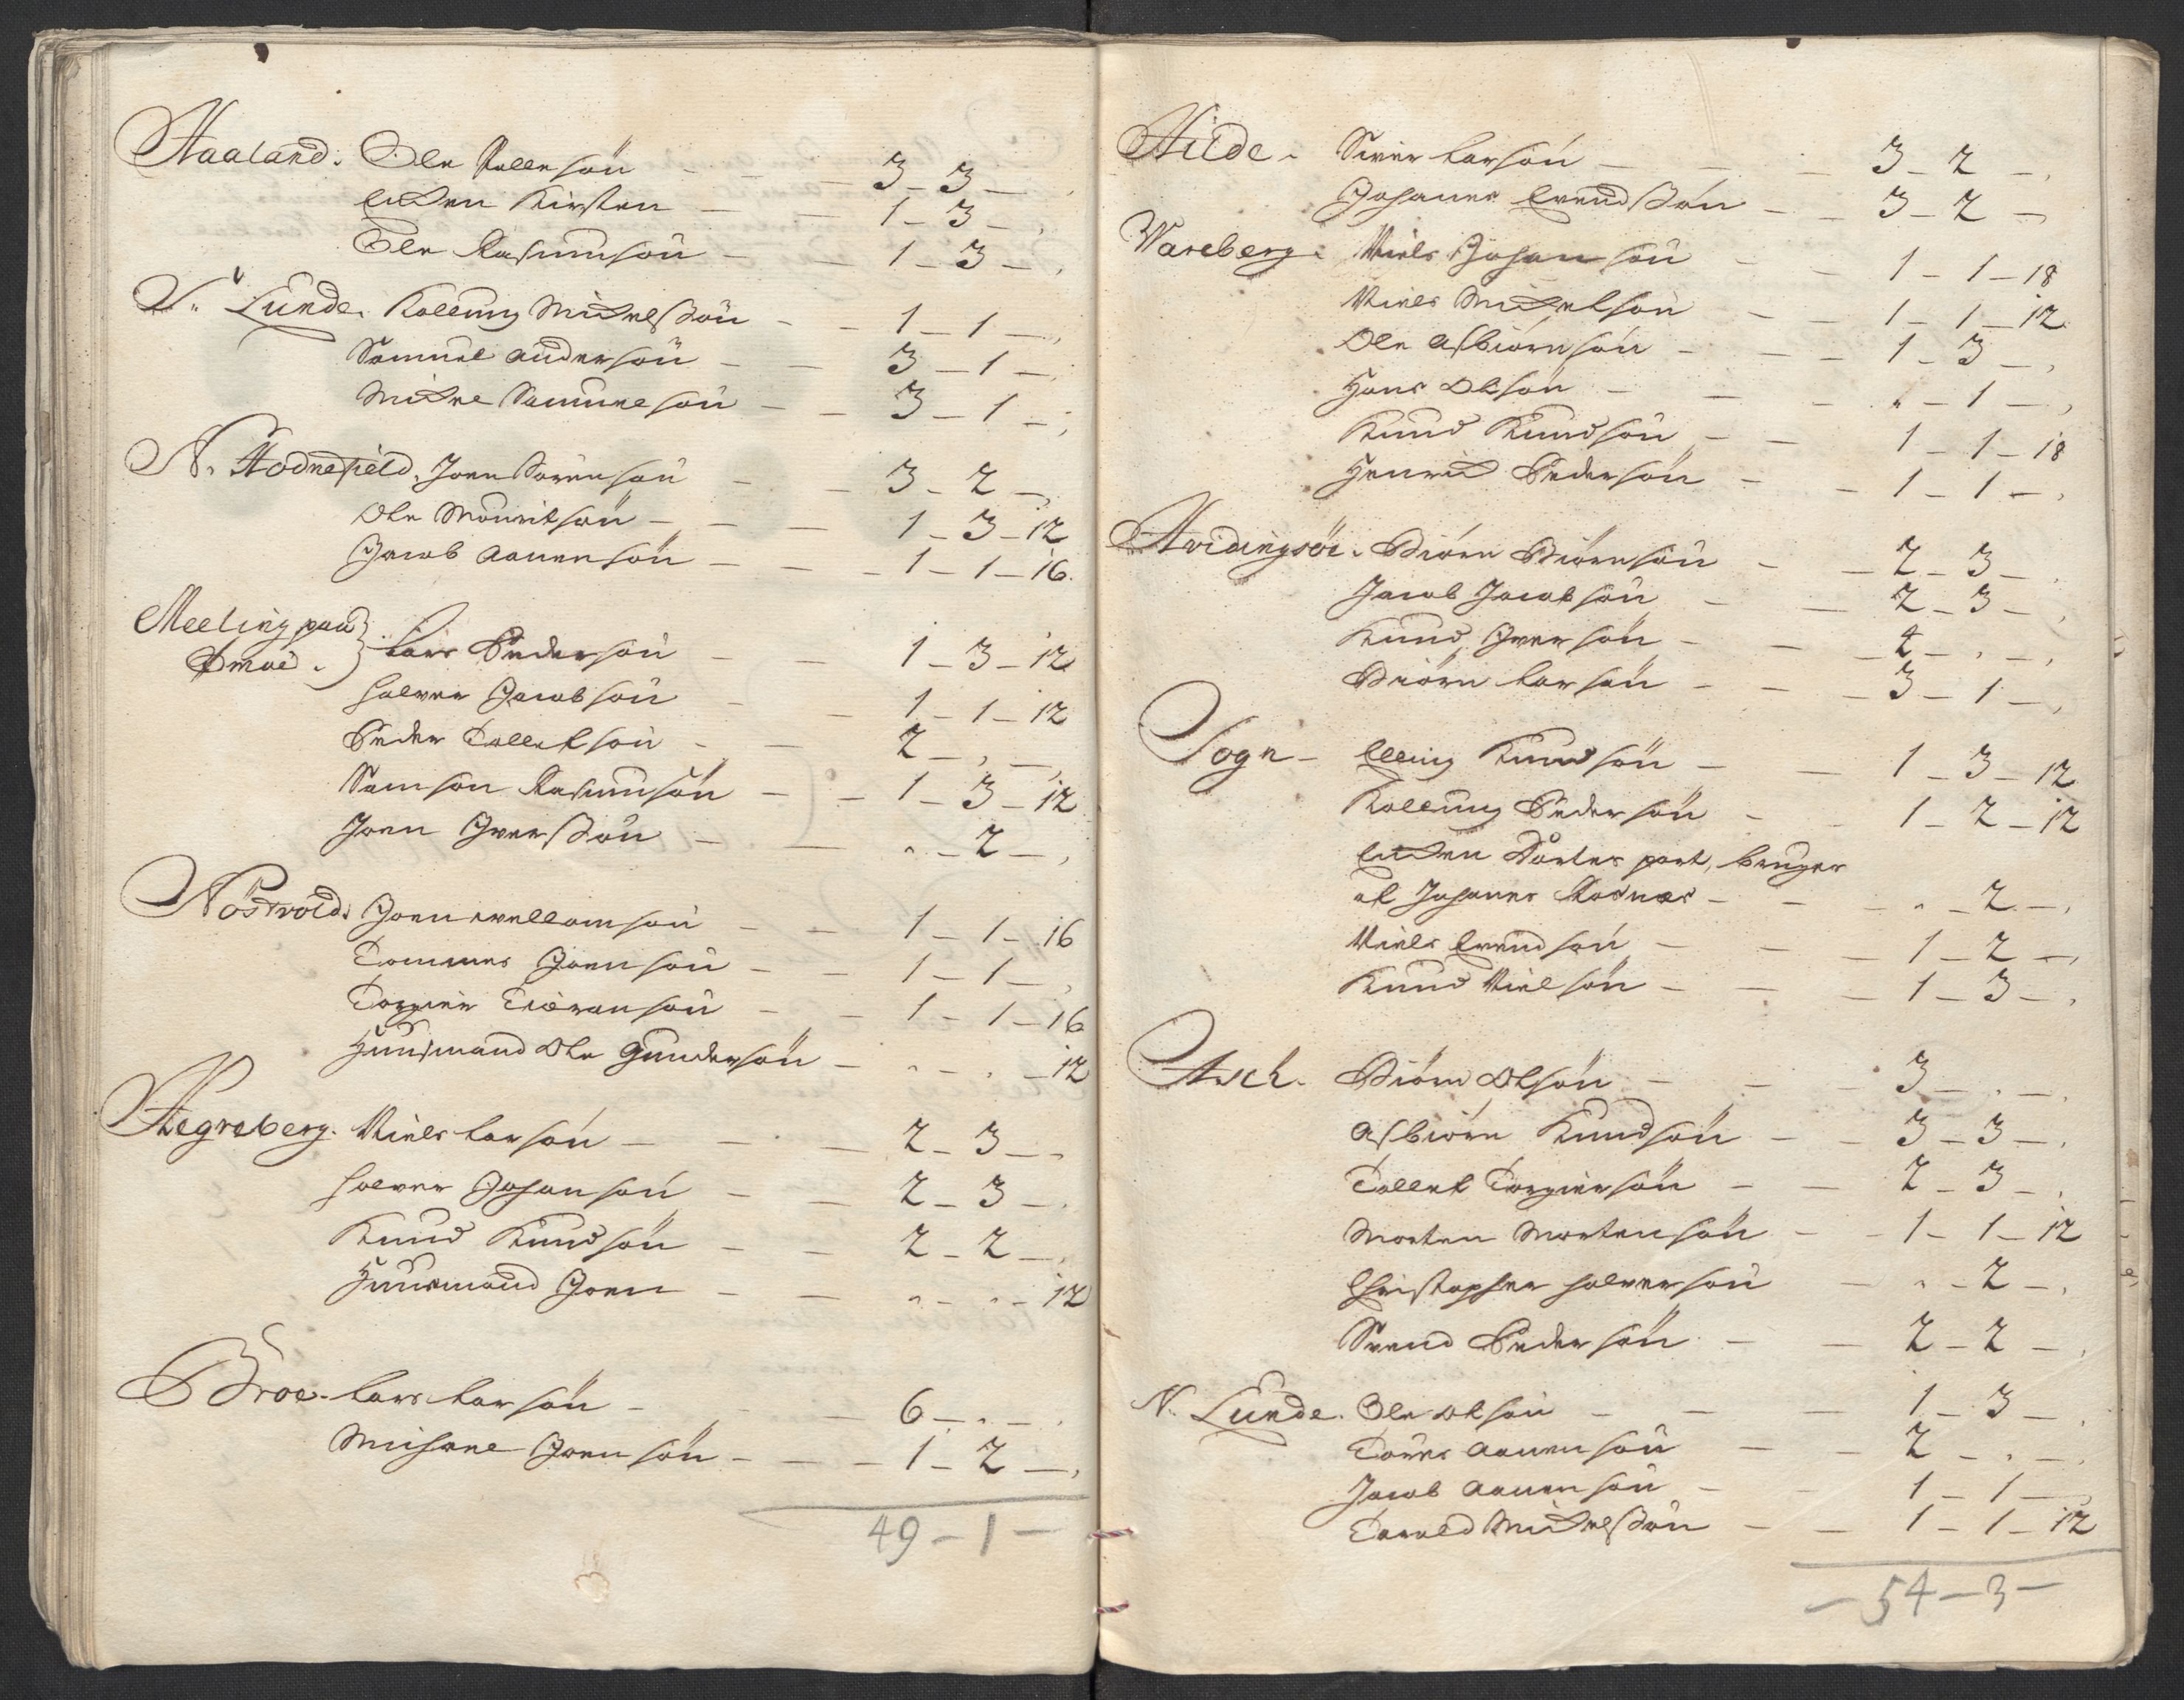 Haaland. Ole Pollesön – – 3 – 3 –
Encken Kirsten – – 1 – 3 –
Ole Rasmusön – – 1 – 3 –
Lunde. Kolbing Michelsön – – 1 – 1 –
Samuel Andersön – – 3 – 1 –
Michel Samuelsön – – 3 – 1 –
N. Hodnefield. Joen Sörensön – – 3 – 2 –
Ole Mouritsön – – 1 – 3 – 12
Jacob Aanensön – – 1 – 1 – 16
Meeling paa
Amöe. Lars Pedersön – – 1 – 3 – 12
Halvor Jacobsön – – 1 – 1 – 12
Peder Tolletsön – – 2 – –
Samson Rasmusön – – 1 – 3 – 12
Joen Iversön – – " – 2 –
Nöstvold. Joen Wellomsön – – 1 – 1 – 16
Tommes Joensön – – 1 – 1 –
Torgier Tiöransön – – 1 – 1 – 16
Huusmand Ole Gundersön – " – " – 12
Hegreberg. Niels Larsön – – 2 – 3 –
Halvor Johansön – – 2 – 3 –
Knud Knudsön – – 2 – 2 –
Huusmand Joen – – " – " – 12
Broe. Lars Larsön – – 6 – " –
Michael Joensön – – 1 – 2 –
49 – 1 –
Hilde. Siver Larsön – – 3 – 2 –
Johannes Erendsön – – 3 – 2 –
Wareberg. Niels Johansön – – 1 – 1 – 18
Niels Michelsön – – 1 – 1 – 12
Ole Asbiörnsön – – 1 – 3 –
Hans Olsön – – " – 1 –
Knud Knudsön – – 1 – 1 – 18
Henrich Pedersön – – 1 – 1 –
Hvidingsöe. Biörn Biörnsön – – 2 – 3 –
Jacob Jacobsön – – 2 – 3 –
Knud Iversön – – 4 – " –
Biörn Larsön – – 3 – 1 –
Sogn – Elling Knudsön – – 1 – 3 – 12
Kolbing Pedersön – – 1 – 2 – 12
Encken Dortes part, bruges
af Johannes Rosnæs – – " – 2 –
Niels Erendsön – – 1 – 2 –
Knud Nielsön – – 1 – 3 –
Asch. Biörn Olsön – – 3 – " –
Asbiörn Knudsön – – 3 – 3 –
Tollet Torgiersön – – 2 – 3 –
Morten Mortensön – – 1 – 1 – 12
Christopher Halvorsön – " – 2 –
Svend Pedersön – – 2 – 2 –
N. Lunde. Ole Olsön – – 1 – 3 –
Töres Aanensön – – 2 – " –
Jacob Aanensön – – 1 – 1 –
Torald Michelsön – – 1 – 1 – 12
– 54 – 3 –